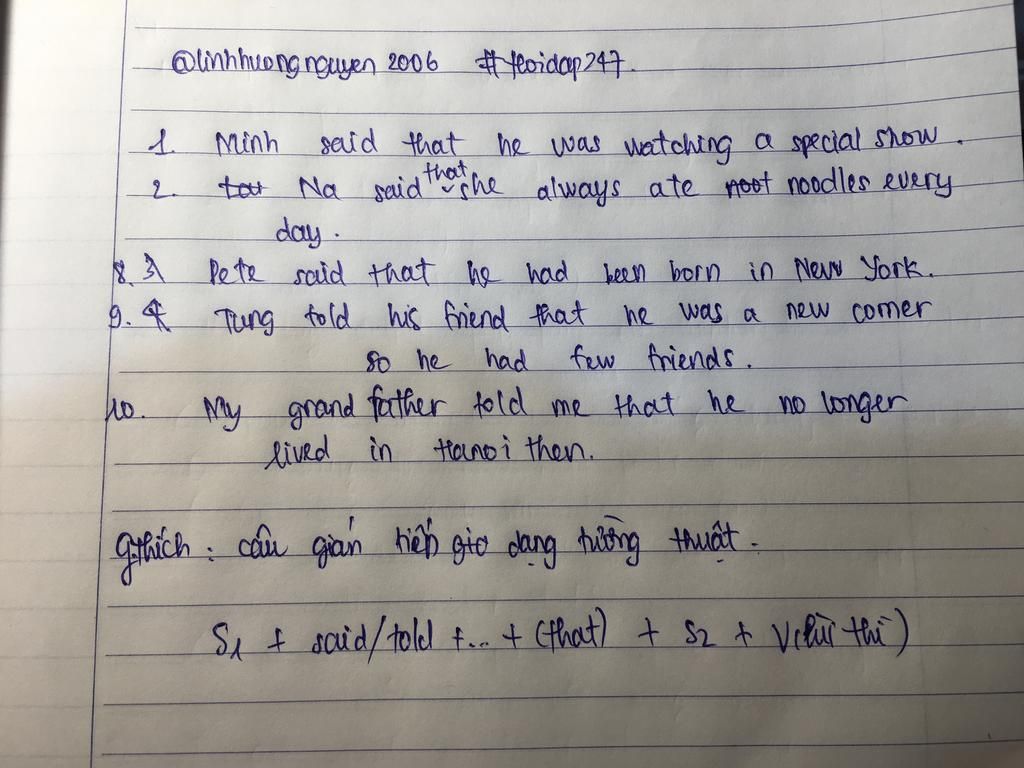 @linhhuongnguyen2006 #hoidap247.
1. Minh said that he was watching a special show.
2. Na said that she always ate noodles every
day.
8. Pete said that he had been born in New York.
9. Tung told his friend that he was a new comer
so he had few friends.
10. My grand father told me that he no longer
lived in Hanoi then.
gthích: câu gián tiếp dạng tường thuật.
S1 + said/told +... + (that) + S2 + V(lùi thì)